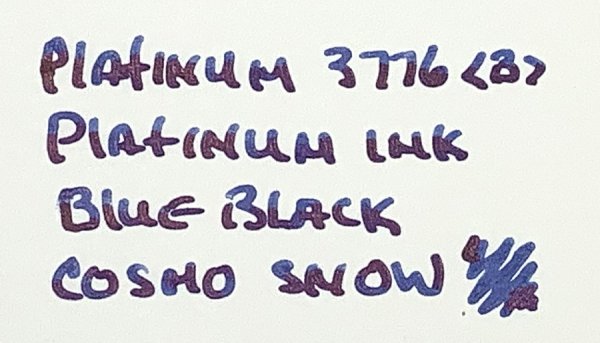 PLATINUM 3776 <B>
PLATINUM INK
BLUE BLACK
COSMO SNOW